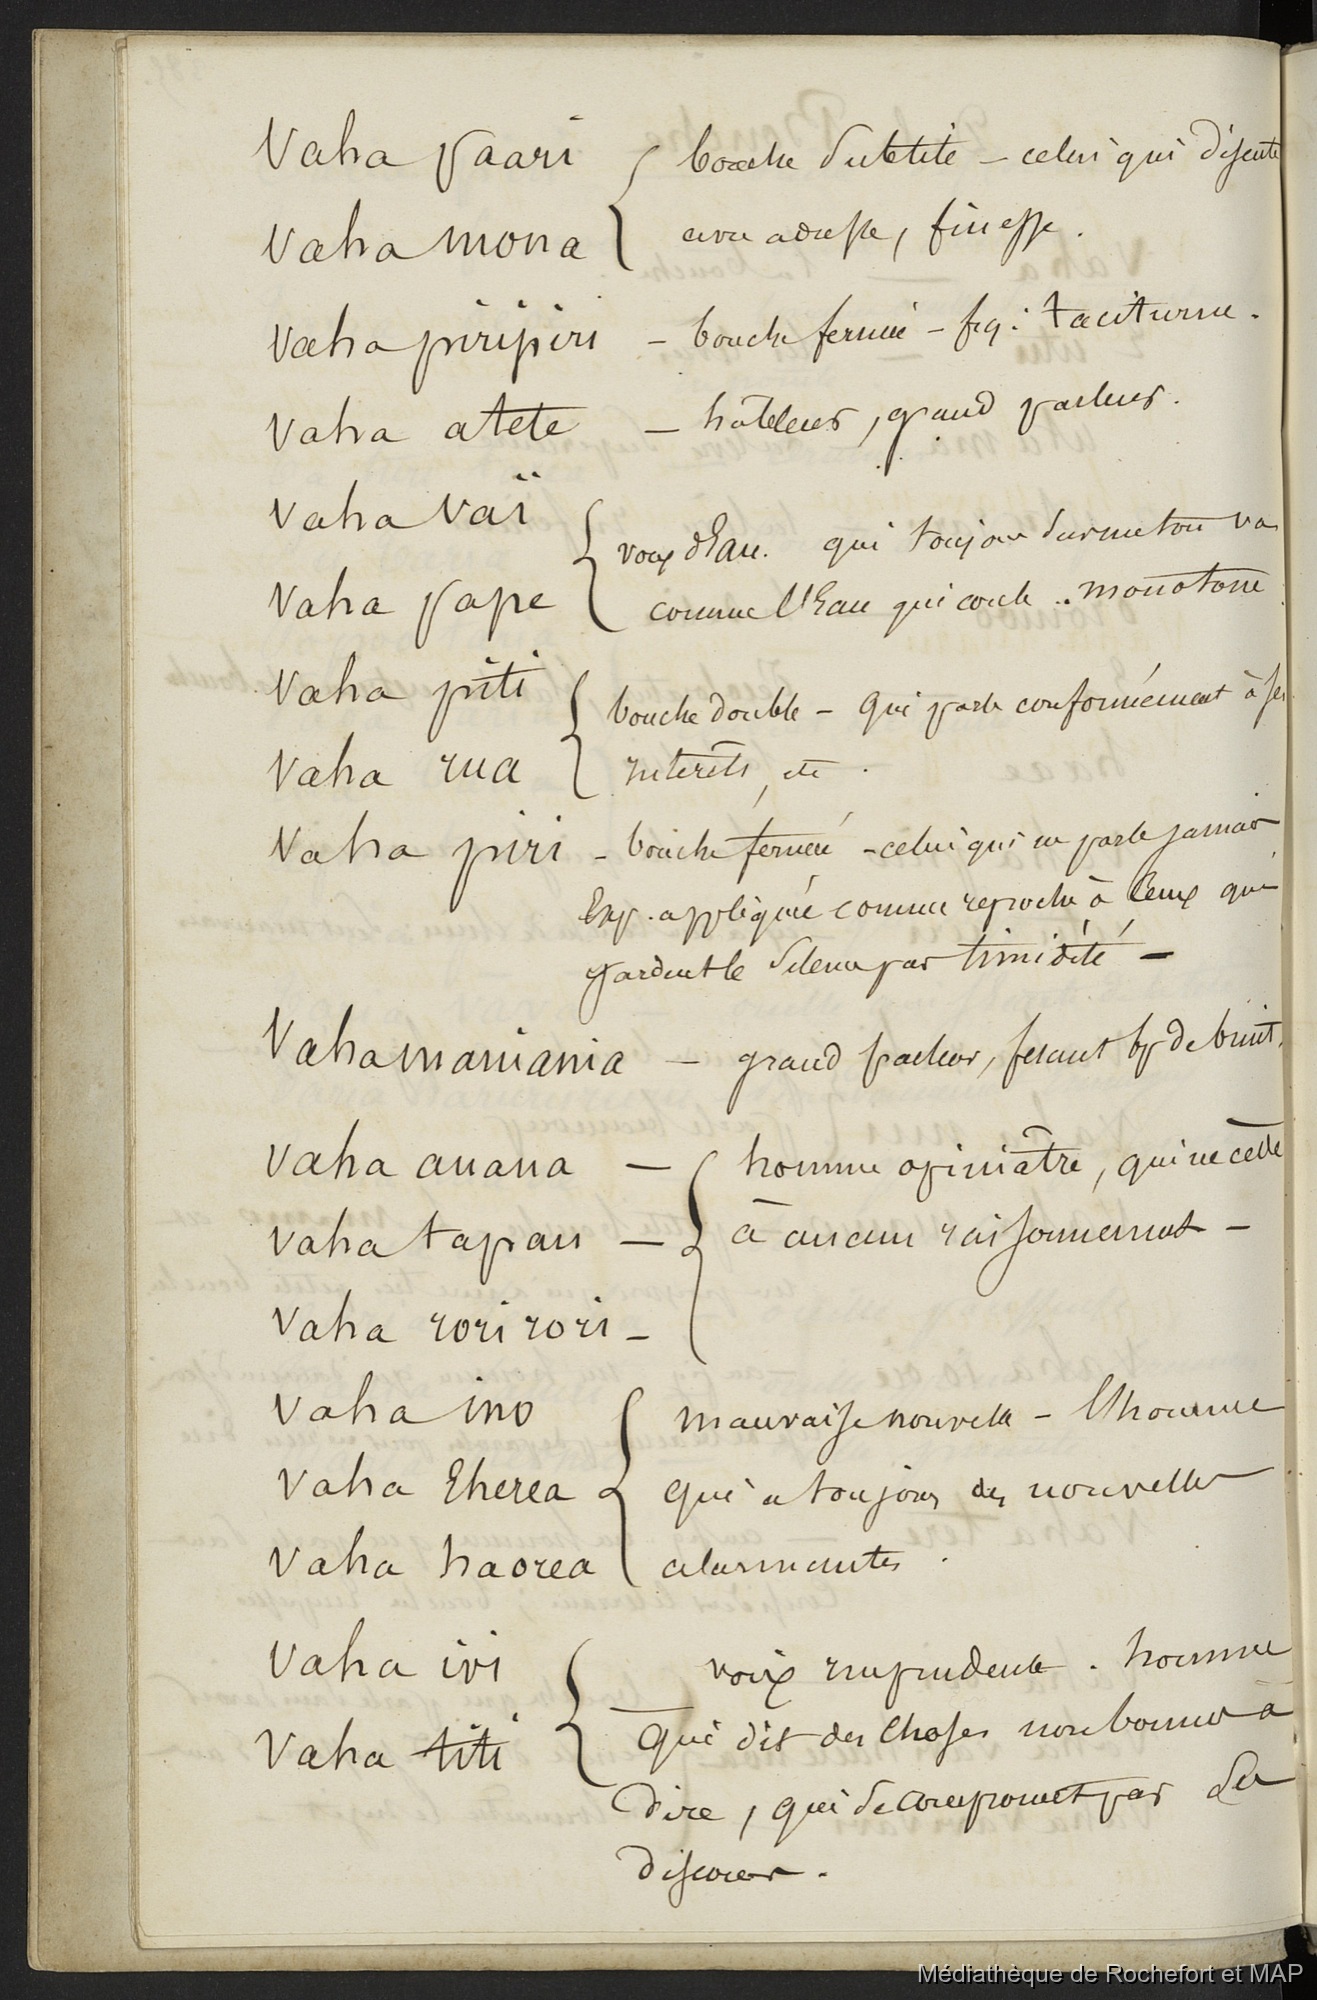 Vaha paari { bouche subtile – celui qui discute
Vaha mona avec adresse, finesse.
Vaha piripiri – bouche fermée – fig: taciturne.
Vaha atete – hâbleur, grand parleur.
Vaha vaï { voix d'Eau. qui toujours sur un ton va
Vaha pape comme l'Eau qui coule .. monotone
Vaha piti { bouche double – qui parle conformément à ses
Vaha rua interêts, etc.
Vaha piri – bouche fermée – celui qui ne parle jamais
Exp. appliquée comme reproche à ceux qui
gardent le silence par timidité –
Vaha maniania – grand parleur, fesant bp de bruit.
Vaha auaua – { homme opiniâtre, qui ne cède
Vaha tapau – à aucun raisonnement –
Vaha rorirori –
Vaha ino { mauvaise nouvelle – l'homme
Vaha Eherea qui a toujours des nouvelles
Vaha haorea alarmantes.
Vaha ivi { voix imprudente. homme
Vaha titi qui dit des choses non bonnes à
dire, qui se compromet par ses
discours.
Médiathèque de Rochefort et MAP